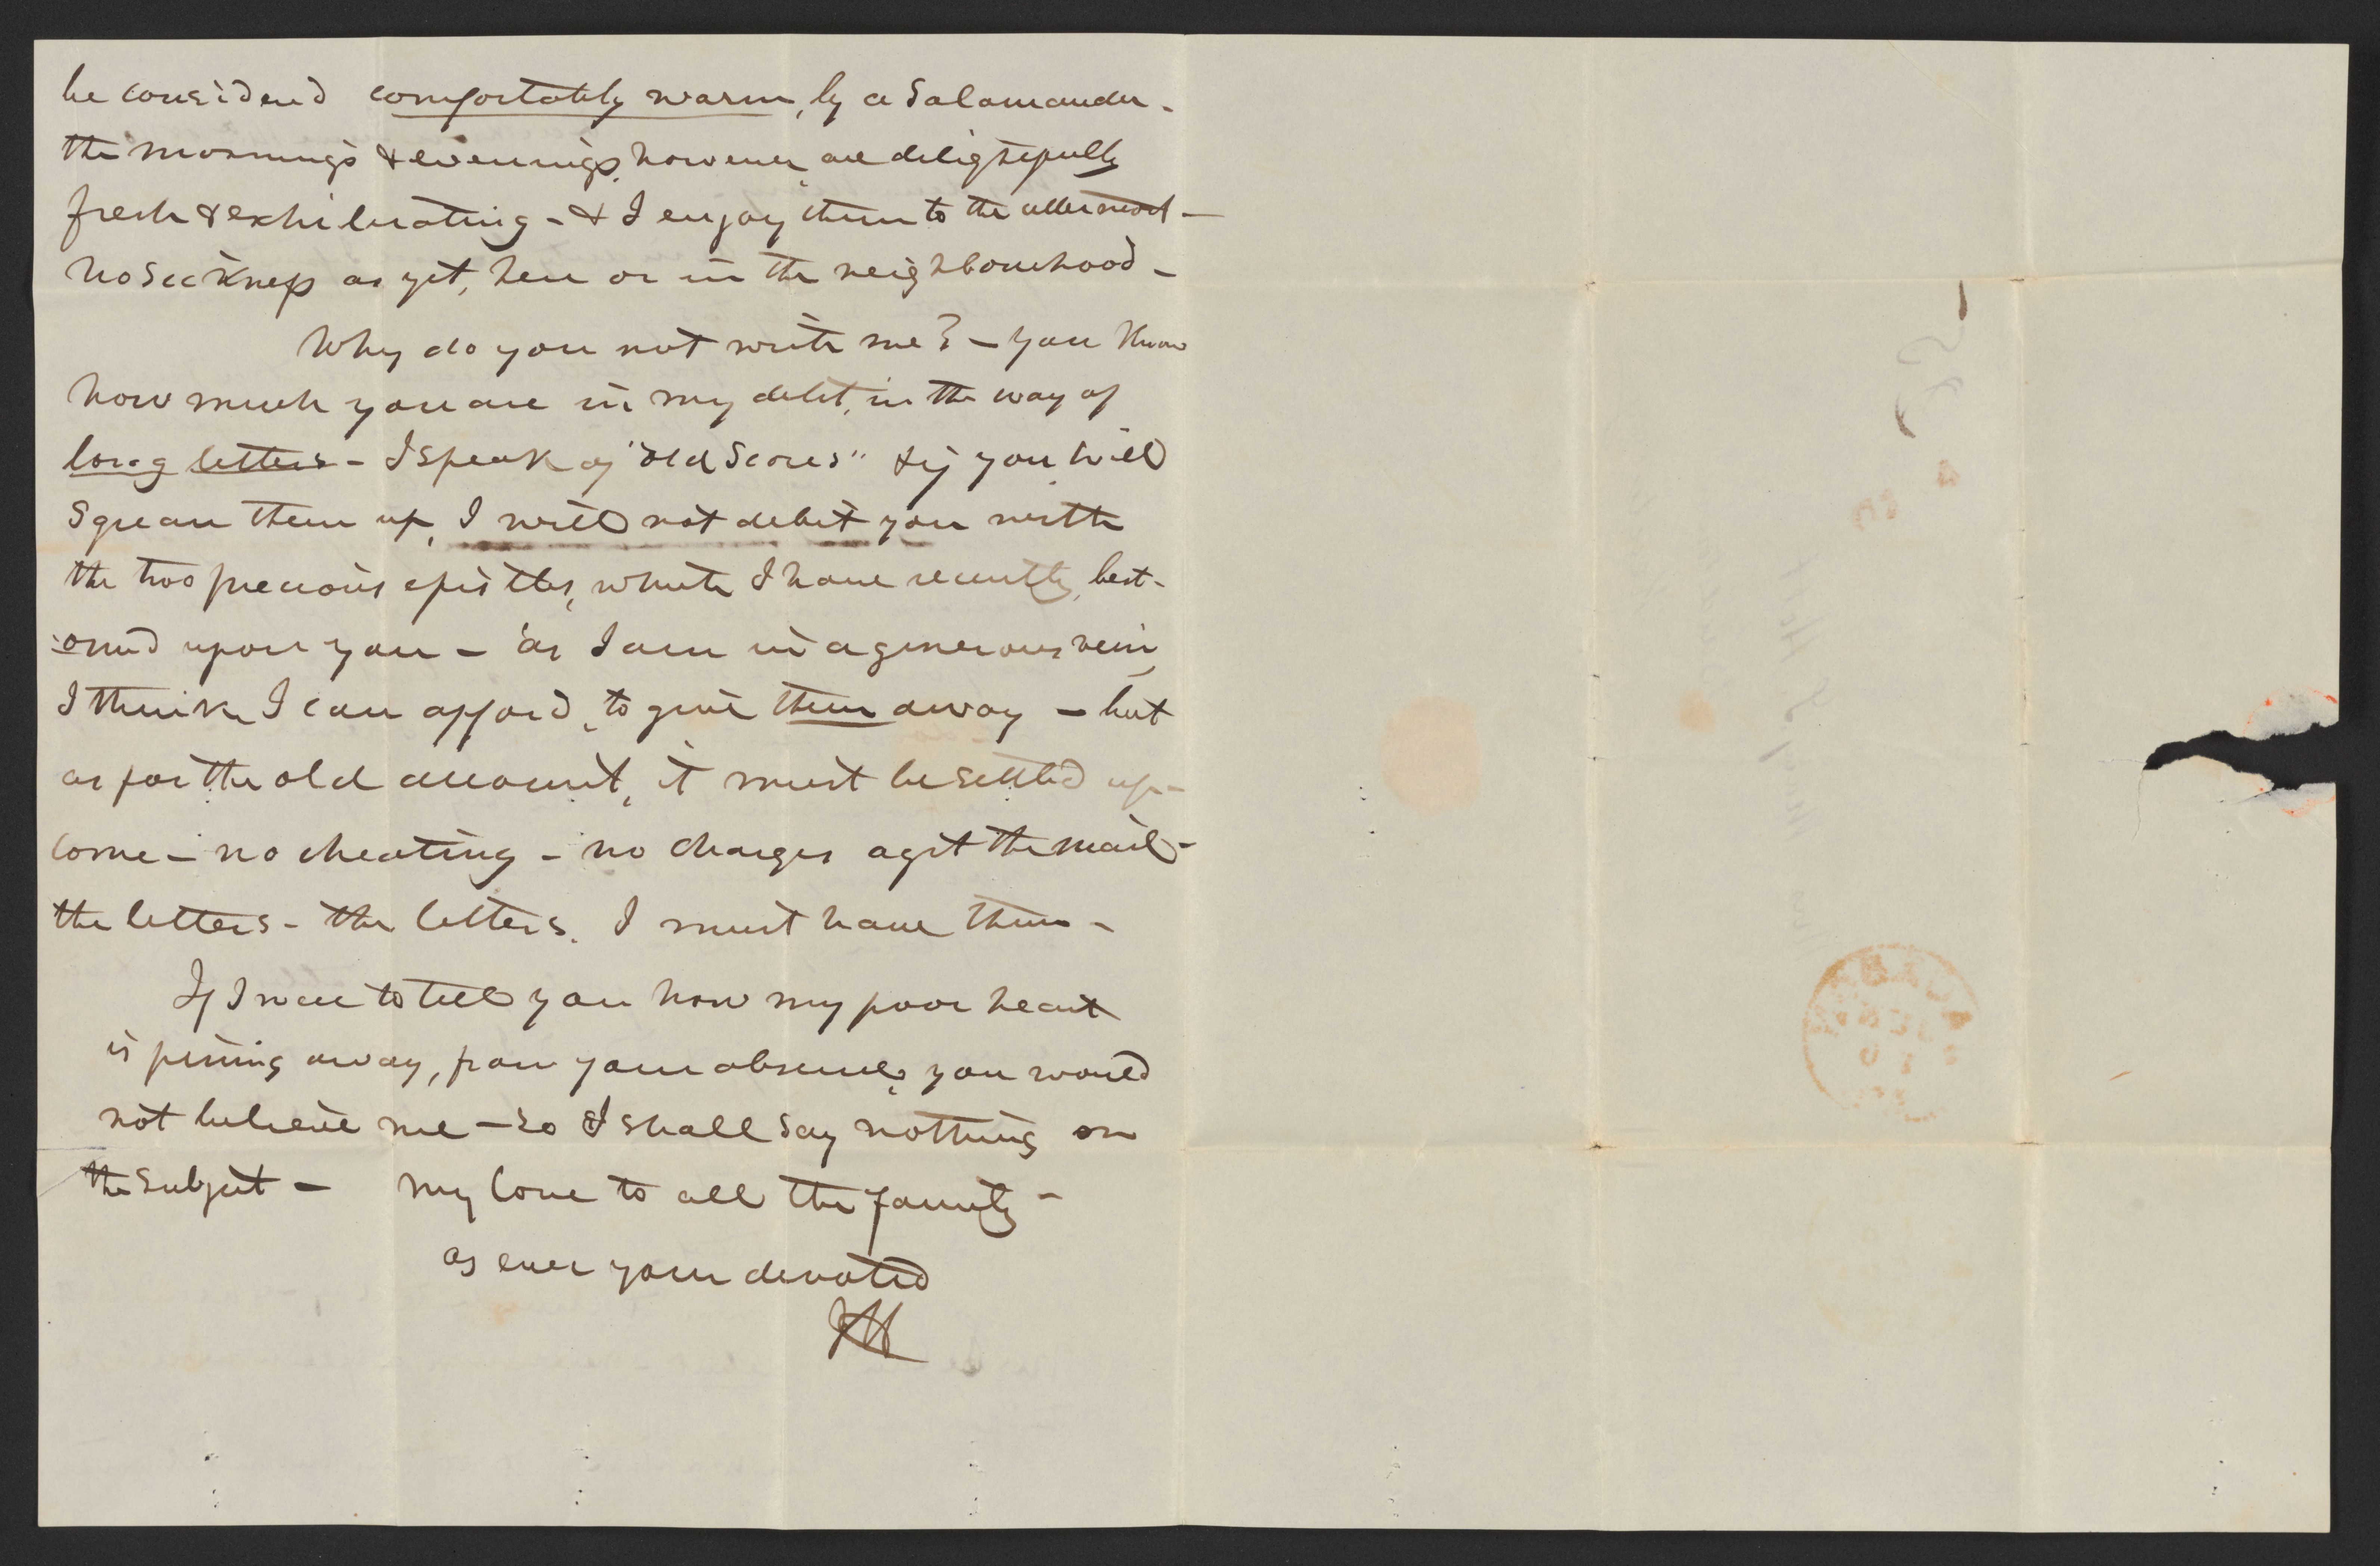 be considered comfortably warm, by a Salamander -
the mornings & evenings, however, are delightfully
fresh & exhilerating - & I enjoy them to the uttermost -
No sickness as yet, here or in the neighbourhood -
Why do you not write me? - you know
how much you are in my debt, in the way of
long letters - I speak of "old scores" & if you will
square them up, I will not debit you with
the two precious epistles, which I have recently, best-
-owed upon you - as I am in a generous vein,
I think I can afford, to give them away - but
as for the old account, it must be settled up -
come - no cheating - no charges agst the mail -
the letters - the letters. I must have them -
If I were to tell you how my poor heart
is pining away, from your absence, you would
not believe me - so I shall say nothing on
the subject - My love to all the family -
as ever your devoted